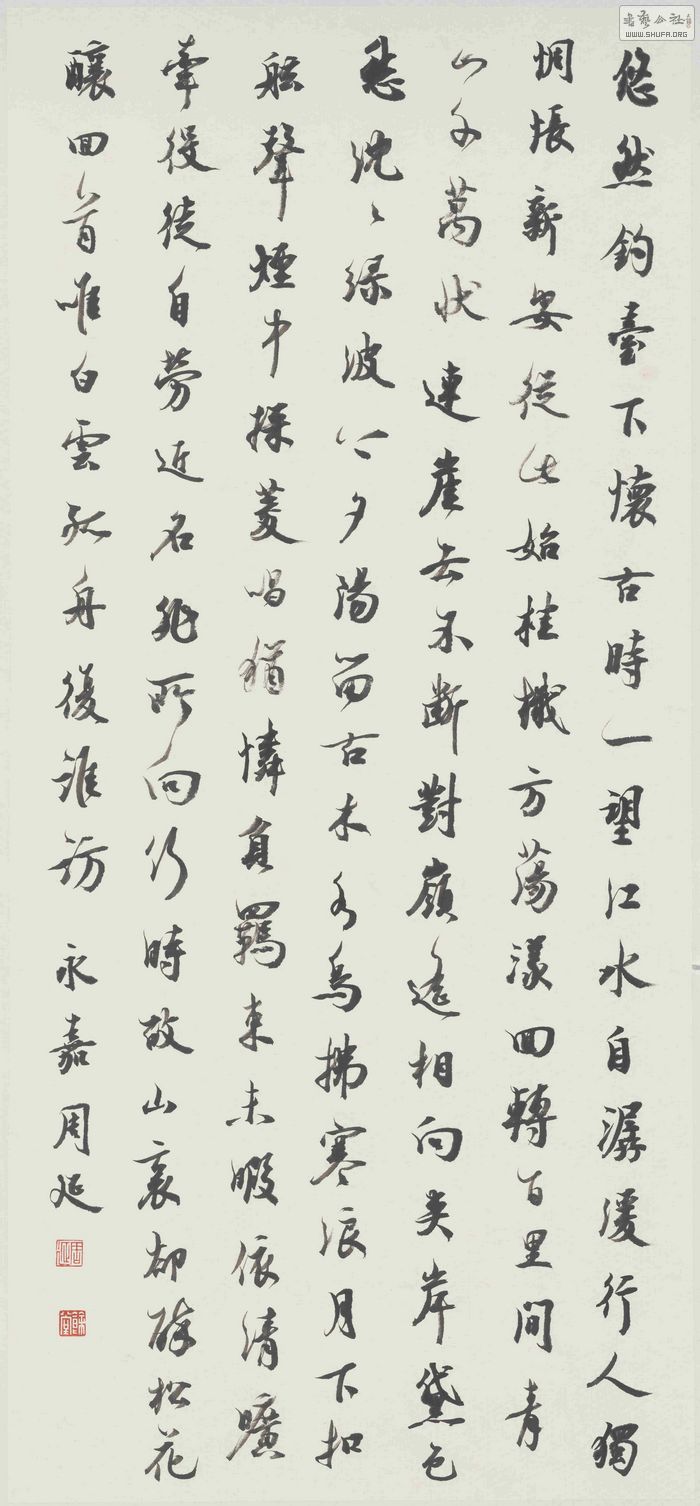 悠然釣臺下懷古時一望江水自潺湲行人獨
惆悵新安從此始桂檝方蕩漾回轉百里間青
山千萬狀連崖去不斷對嶺遙相向夾岸黛色
愁沈々綠波上夕陽留古木水鳥拂寒浪月下扣
舷聲煙中採菱唱猶憐負羈束未暇依清曠
牽役徒自勞近名非所向何時故山裏却醉松花
釀回首唯白雲孤舟復誰訪 永嘉周延
周延
書藝公社
WWW.SHUFA.ORG